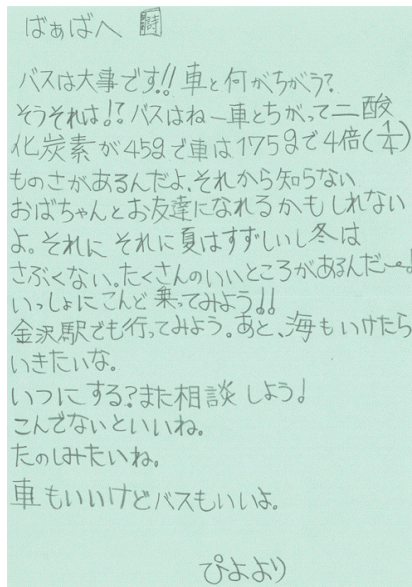 ばぁばへ 詩
バスは大事です!!車と何がちがう?
そうそれは!?バスはねー車とちがって二酸
化炭素が45gで車は175gで4倍(1/4)
ものさがあるんだよ、それから知らない
おばちゃんとお友達になれるかもしれない
よ。それに それに夏はすずしいし冬は
さぶくない。たくさんのいいところがあるんだ〜!
いっしょにこんど乗ってみよう!!
金沢駅でも行ってみよう。あと、海もいけたら
いきたいな。
いつにする?また相談しよう!
こんでないといいね。
たのしみたいね。
車もいいけどバスもいいよ。
ぴよより